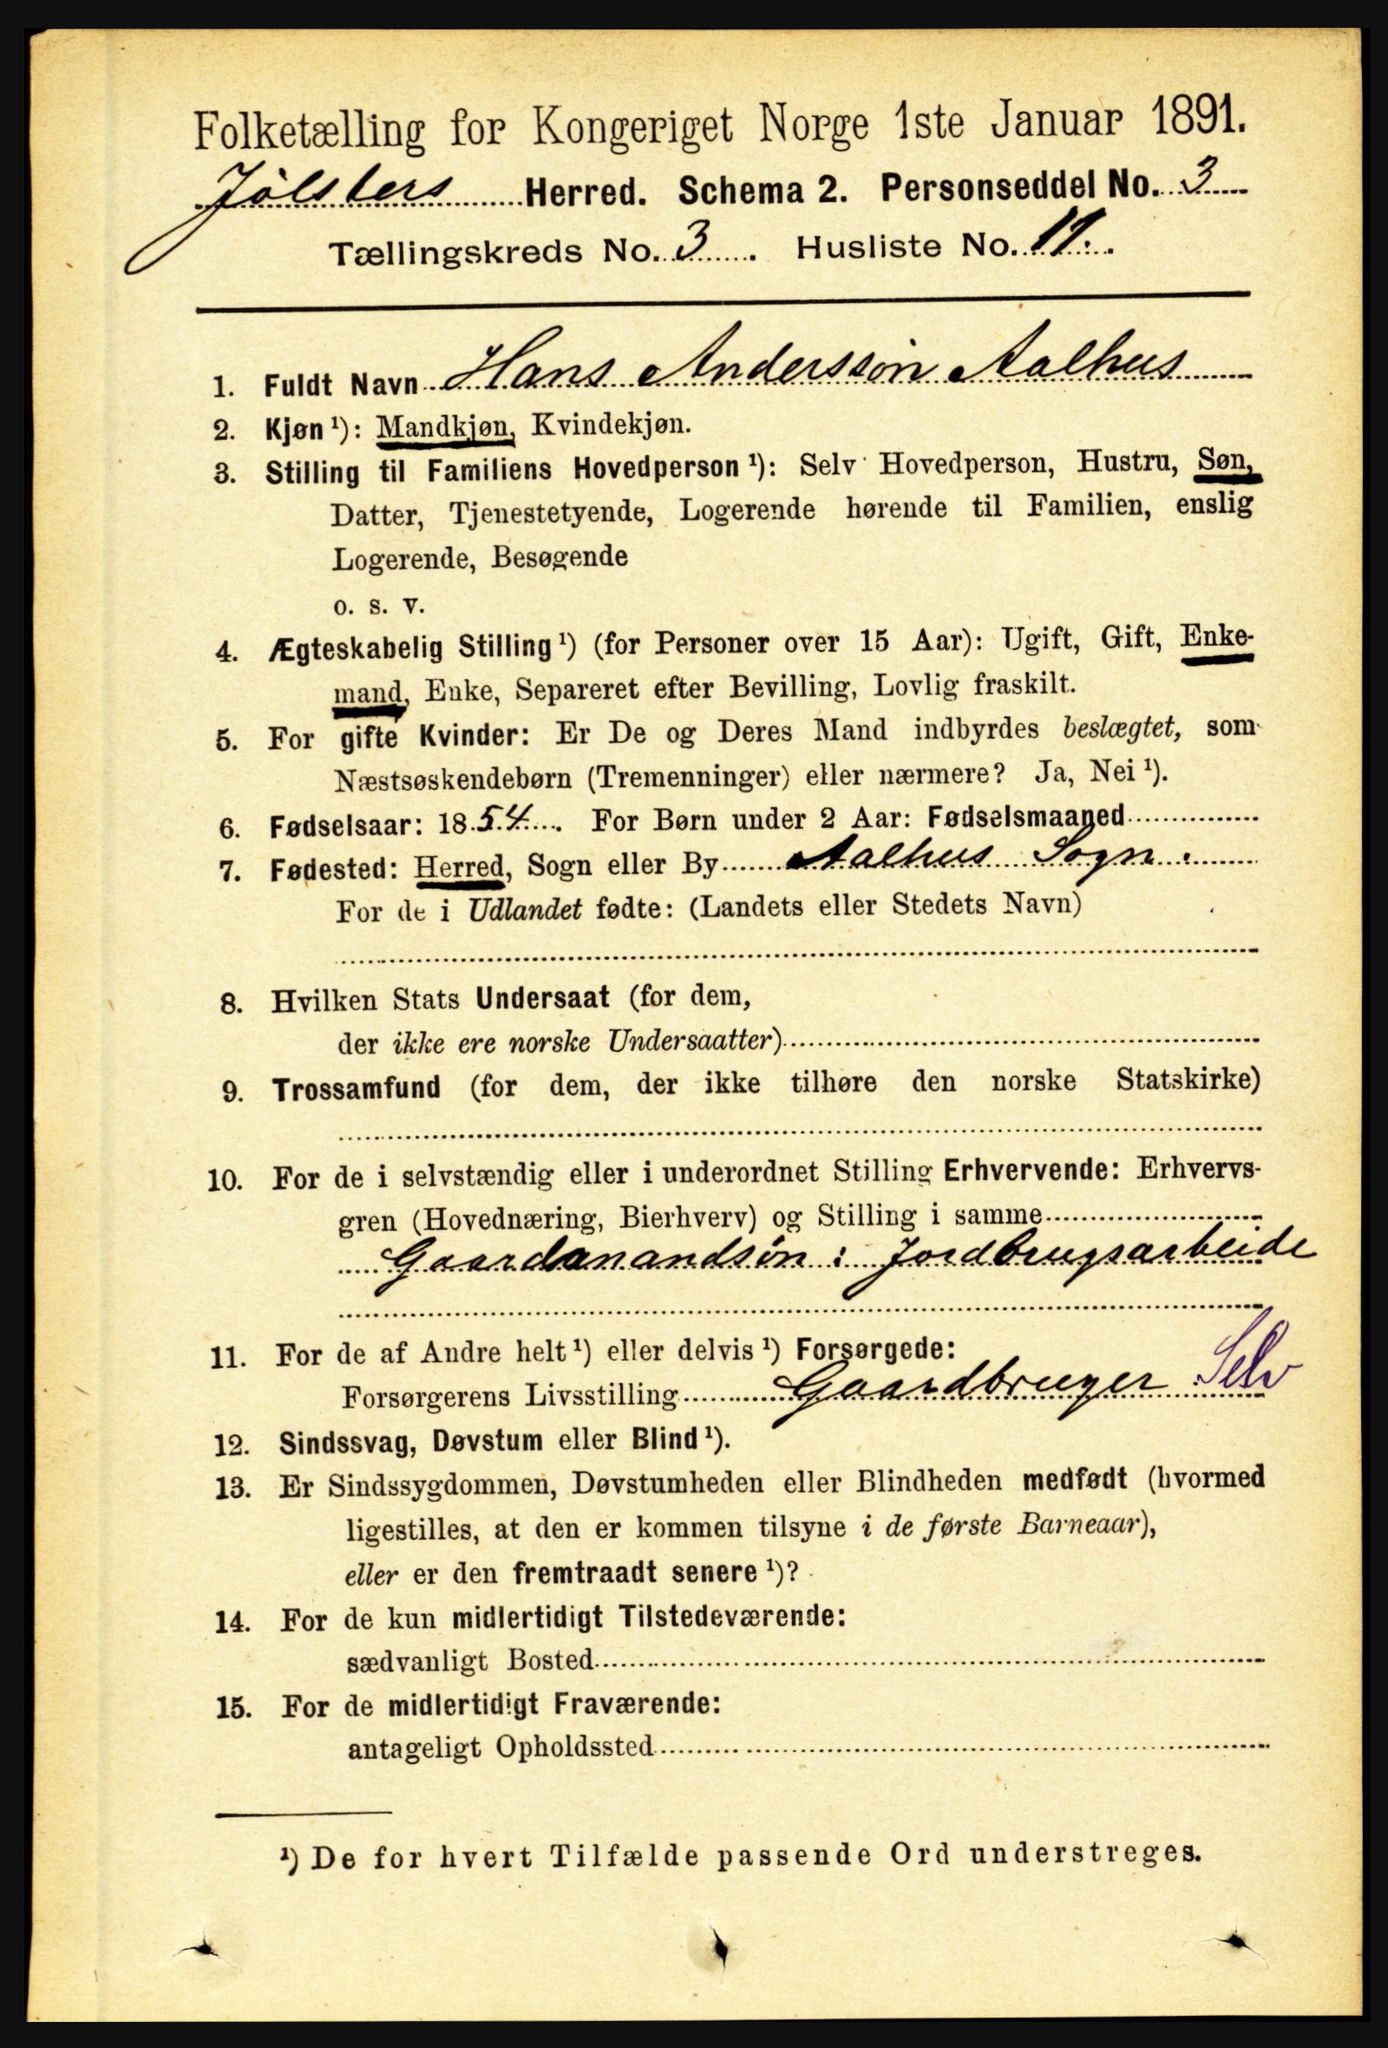 Folketælling for Kongeriget Norge 1ste Januar 1891.
Jølsters Herred. Schema 2. Personseddel No. 3
Tællingskreds No. 3. Husliste No. 17.
1. Fuldt Navn Hans Anderssøn Aalhus
2. Kjøn ¹): Mandkjøn, Kvindekjøn.
3. Stilling til Familiens Hovedperson ¹): Selv Hovedperson, Hustru, Søn,
Datter, Tjenestetyende, Logerende hørende til Familien, enslig
Logerende, Besøgende
o. s. v.
4. Ægteskabelig Stilling ¹) (for Personer over 15 Aar): Ugift, Gift, Enke-
mand, Enke, Separeret efter Bevilling, Lovlig fraskilt.
5. For gifte Kvinder: Er De og Deres Mand indbyrdes beslægtet, som
Næstsøskendebørn (Tremenninger) eller nærmere? Ja, Nei ¹).
6. Fødselsaar: 1854. For Børn under 2 Aar: Fødselsmaaned
7. Fødested: Herred, Sogn eller By Aalhus Sogn.
For de i Udlandet fødte: (Landets eller Stedets Navn)
8. Hvilken Stats Undersaat (for dem,
der ikke ere norske Undersaatter)
9. Trossamfund (for dem, der ikke tilhøre den norske Statskirke)
10. For de i selvstændig eller i underordnet Stilling Erhvervende: Erhvervs-
gren (Hovednæring, Bierhverv) og Stilling i samme
Gaardmandsøn : Jordbrugsarbeide
11. For de af Andre helt ¹) eller delvis ¹) Forsørgede:
Forsørgerens Livsstilling Gaardbruger Selv
12. Sindssvag, Døvstum eller Blind ¹).
13. Er Sindssygdommen, Døvstumheden eller Blindheden medfødt (hvormed
ligestilles, at den er kommen tilsyne i de første Barneaar),
eller er den fremtraadt senere ¹)?
14. For de kun midlertidigt Tilstedeværende:
sædvanligt Bosted
15. For de midlertidigt Fraværende:
antageligt Opholdssted
¹) De for hvert Tilfælde passende Ord understreges.